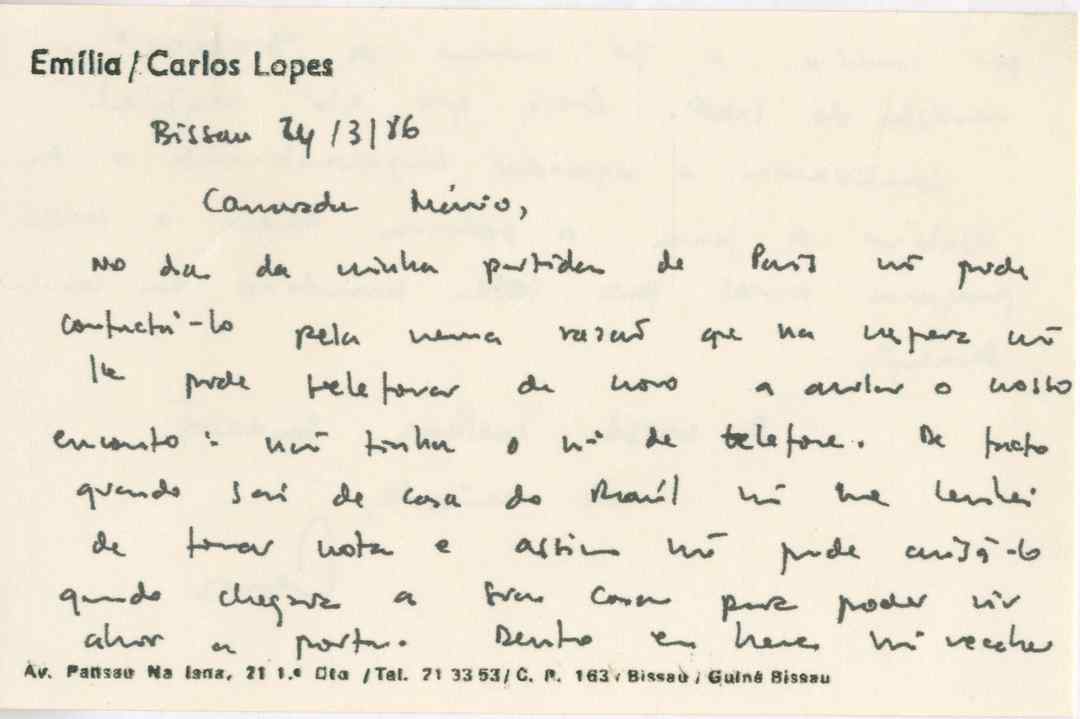 Emília / Carlos Lopes
Bissau 24/3/86
Camarada Mário,
No dia da minha partida de Paris não pude
contactá-lo pela mesma razão que na vespera não
lhe pude telefonar de novo a anular o nosso
encontro: não tinha o nº de telefone. De facto
quando saí de casa do Raúl não me lembrei
de tomar nota e assim não pude avisá-lo
quando chegava a sua casa para poder vir
abrir a porta. Dentro em breve vai receber
Av. Pansau Na Isna, 21 1.º Dto / Tel. 21 33 53 / C. P. 163 / Bissau / Guiné Bissau